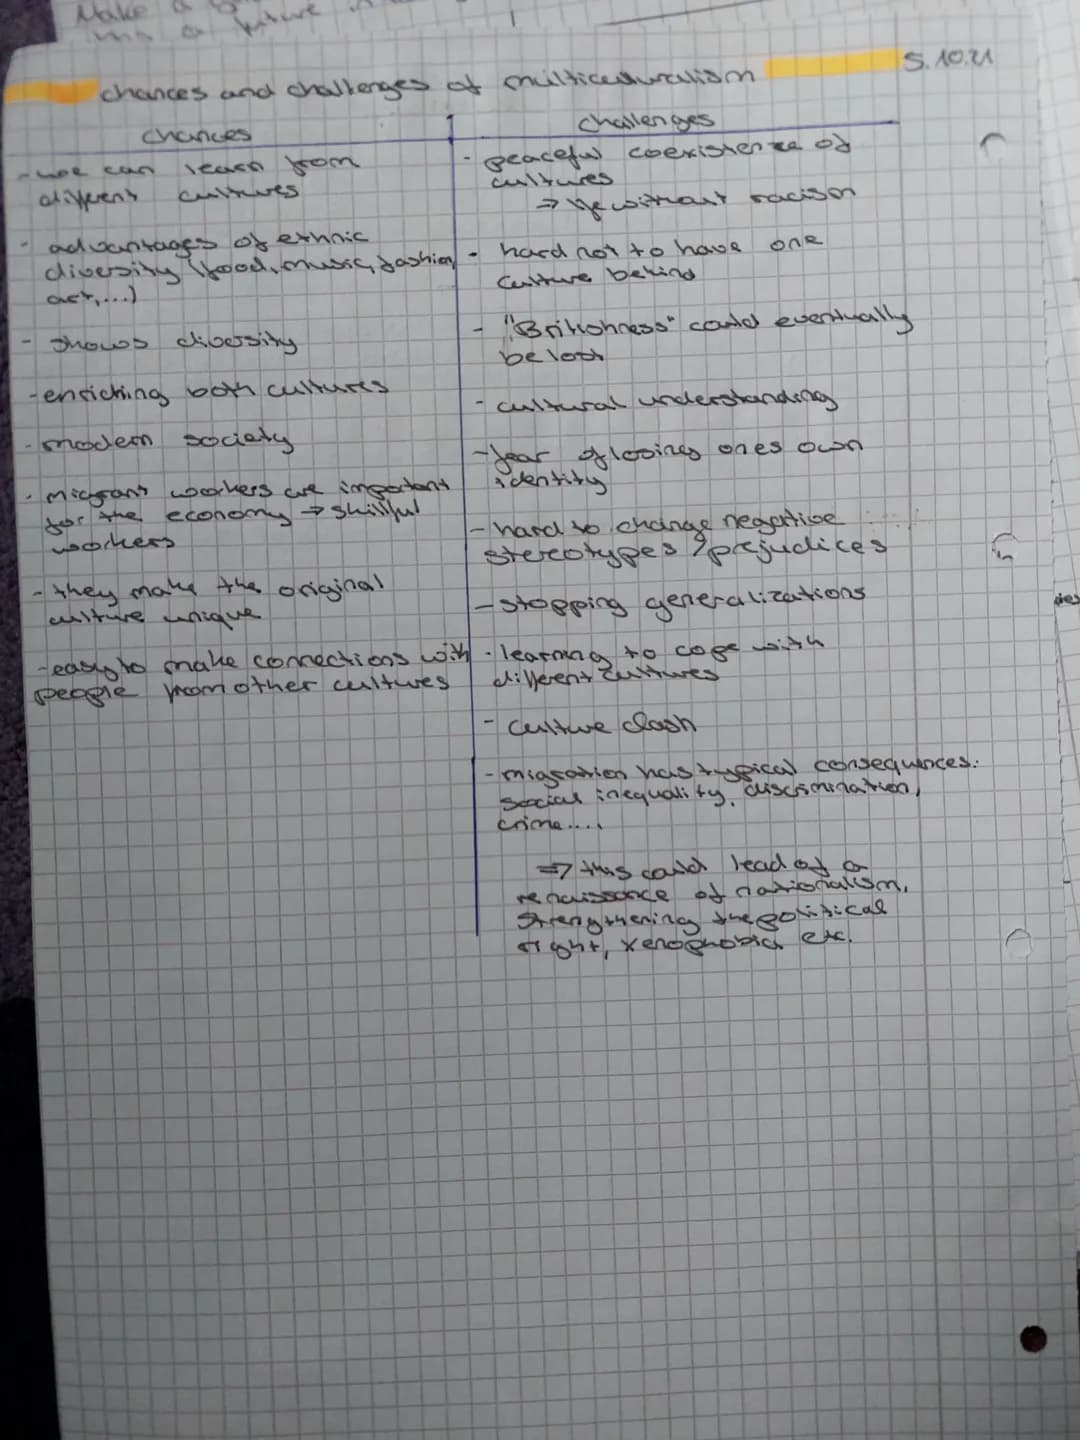 Make a
chances and challenges of multiculturalism
5.10.21
chances
- we can learn from
different cultures
- advantages of ethnic
diversity (food, music, fashion,
art,...)
- shows diversity
- enriching both cultures
- modern society
- migrant workers are important
for the economy → skillful
workers
- they make the original
culture unique
- easy to make connections with
people from other cultures
challenges
- peaceful coexistence of
cultures
⇒ life without racism
- hard not to have one
culture behind
- "Britishness" could eventually
be lost
- cultural understanding
- fear of losing ones own
identity
- hard to change negative
stereotypes / prejudices
- stopping generalizations
- learning to cope with
different cultures
- culture clash
- migration has typical consequences:
social inequality, discrimination,
crime....
⇒ this could lead of a
renaissance of nationalism,
strengthening the political
right, xenophobia etc.